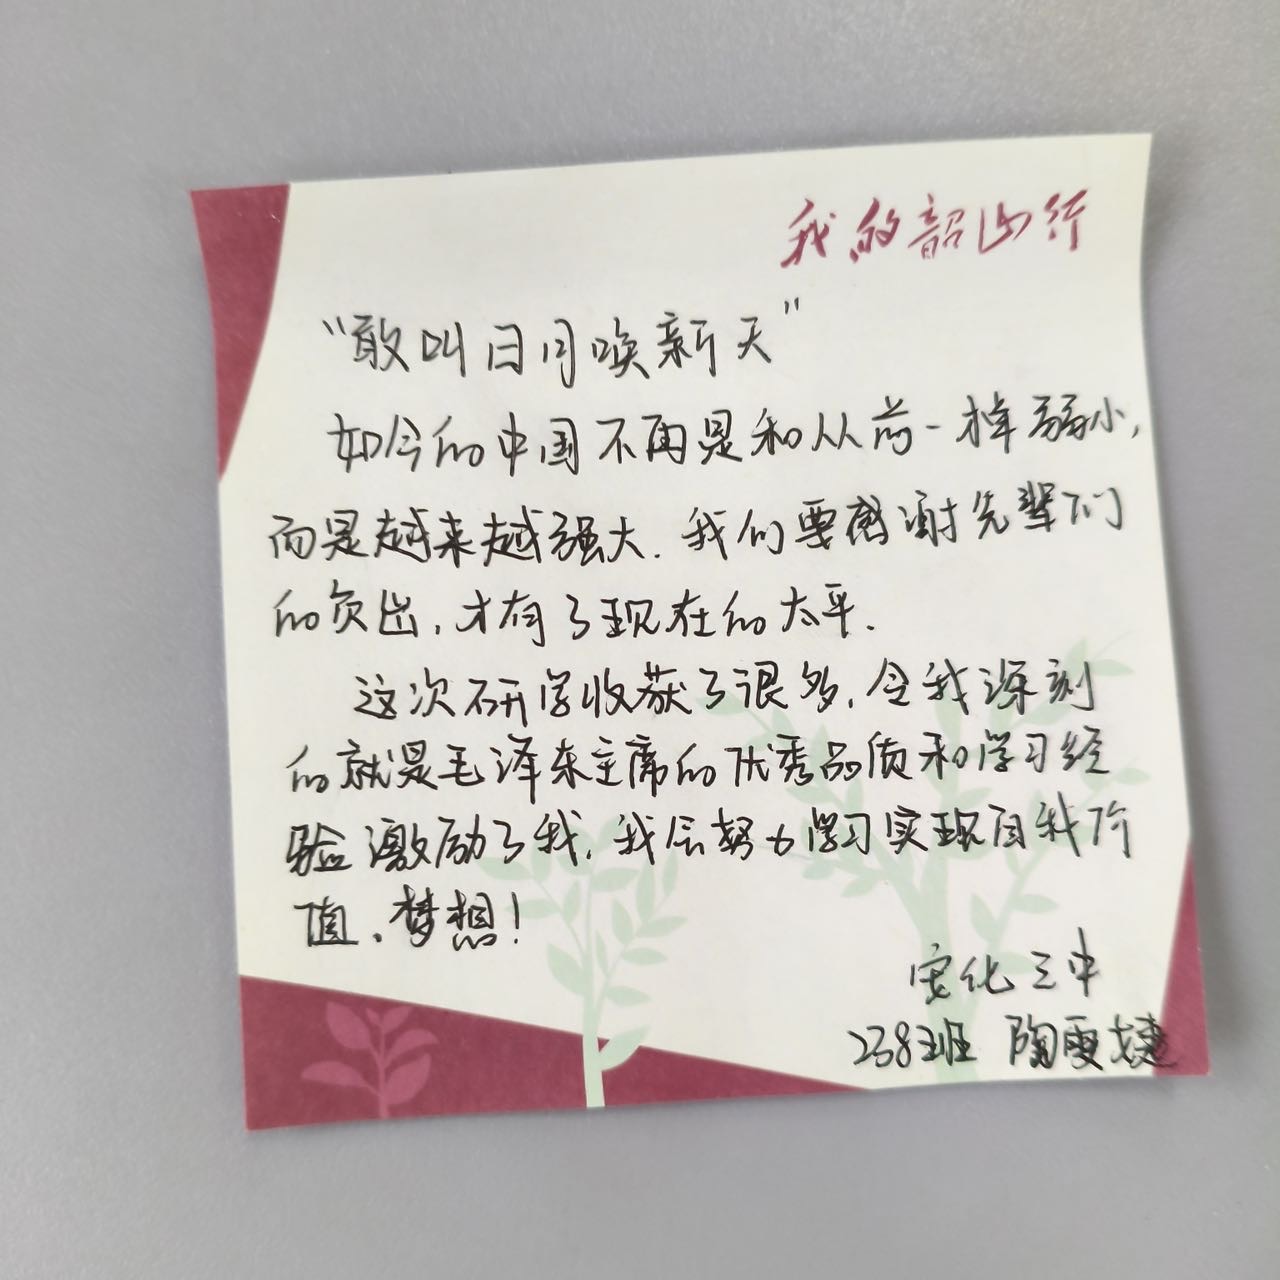 我的韶山行
“敢叫日月唤新天”
如今的中国不再是和从前一样弱小,
而是越来越强大.我们要感谢先辈们
的负出,才有了现在的太平.
这次研学收获了很多,令我深刻
的就是毛泽东主席的优秀品质和学习经
验激励了我,我会努力学习实现自我价
值、梦想!
安化三中
238班 陶雯